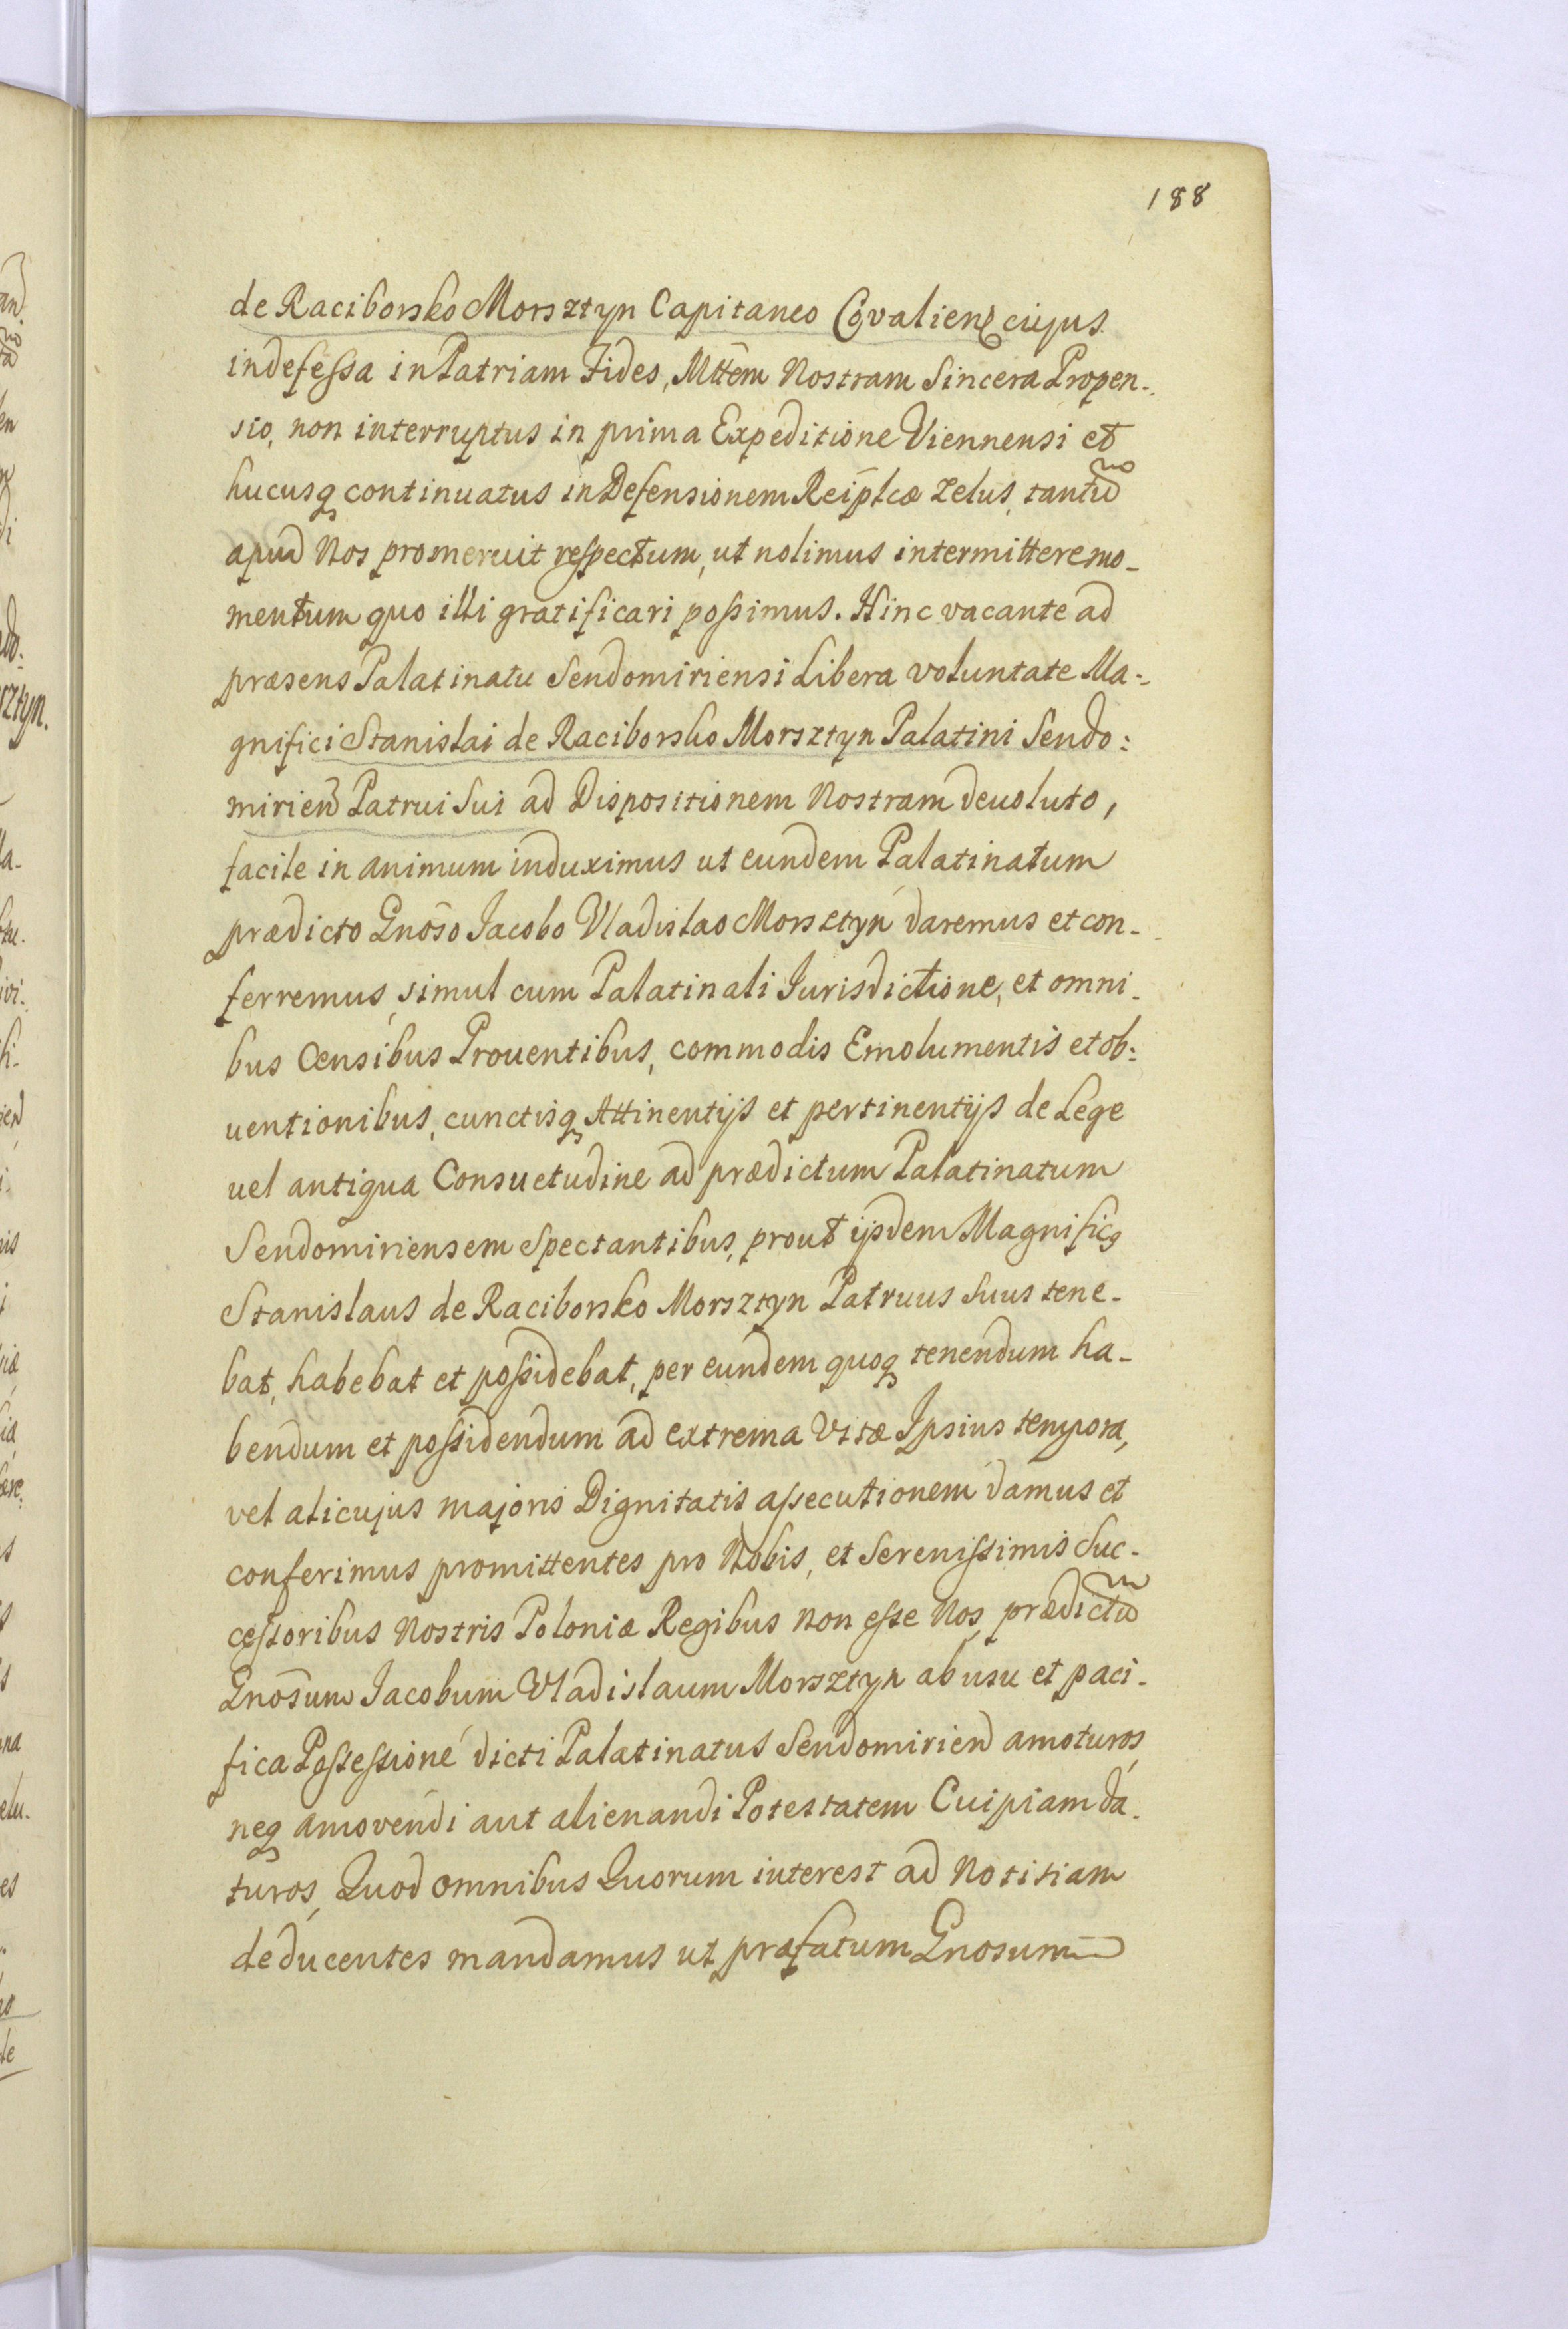 188
de Raciborsko Morsztyn Capitaneo Covalien cujus
indefessa in Patriam Fides, Mttem Nostram Sincera Propen-
sio, non interruptus in prima Expeditione Viennensi et
hucusq continuatus in Defensionem Reiplcæ Zelus, tantū
apud Nos promeruit respectum, ut nolimus intermittere mo-
mentum quo illi gratificari possimus. Hinc vacante ad
præsens Palatinatu Sendomiriensi Libera voluntate Ma-
gnifici Stanislai de Raciborsko Morsztyn Palatini Sendo:
mirien Patrui Sui ad Dispositionem Nostram deuoluto,
facile in animum induximus ut eundem Palatinatum
prædicto Gnōso Jacobo Vladislao Morsztyn daremus et con-
ferremus, simul cum Palatinali Jurisdictione, et omni-
bus Censibus Prouentibus, commodis Emolumentis et ob:
uentionibus, cunctisq Attinentijs et pertinentijs de Lege
uel antiqua Consuetudine ad prædictum Palatinatum
Sendomiriensem Spectantibus, prout ijsdem Magnificq
Stanislaus de Raciborsko Morsztyn Patruus Suus tene-
bat, habebat et possidebat, per eundem quoq tenendum ha-
bendum et possidendum ad extrema Vitæ Ipsius tempora,
vel alicujus majoris Dignitatis assecutionem damus et
conferimus promittentes pro Nobis, et Serenissimis Suc-
cessoribus Nostris Poloniæ Regibus non esse Nos, prædictū
Gnōsum Jacobum Vladislaum Morsztyn ab usu et paci-
fica Possessione dicti Palatinatus Sendomirien amoturos,
neq amovendi aut alienandi Potestatem Cuipiam da-
turos, Quod omnibus Quorum interest ad Notitiam
deducentes mandamus ut præfatum Gnosum